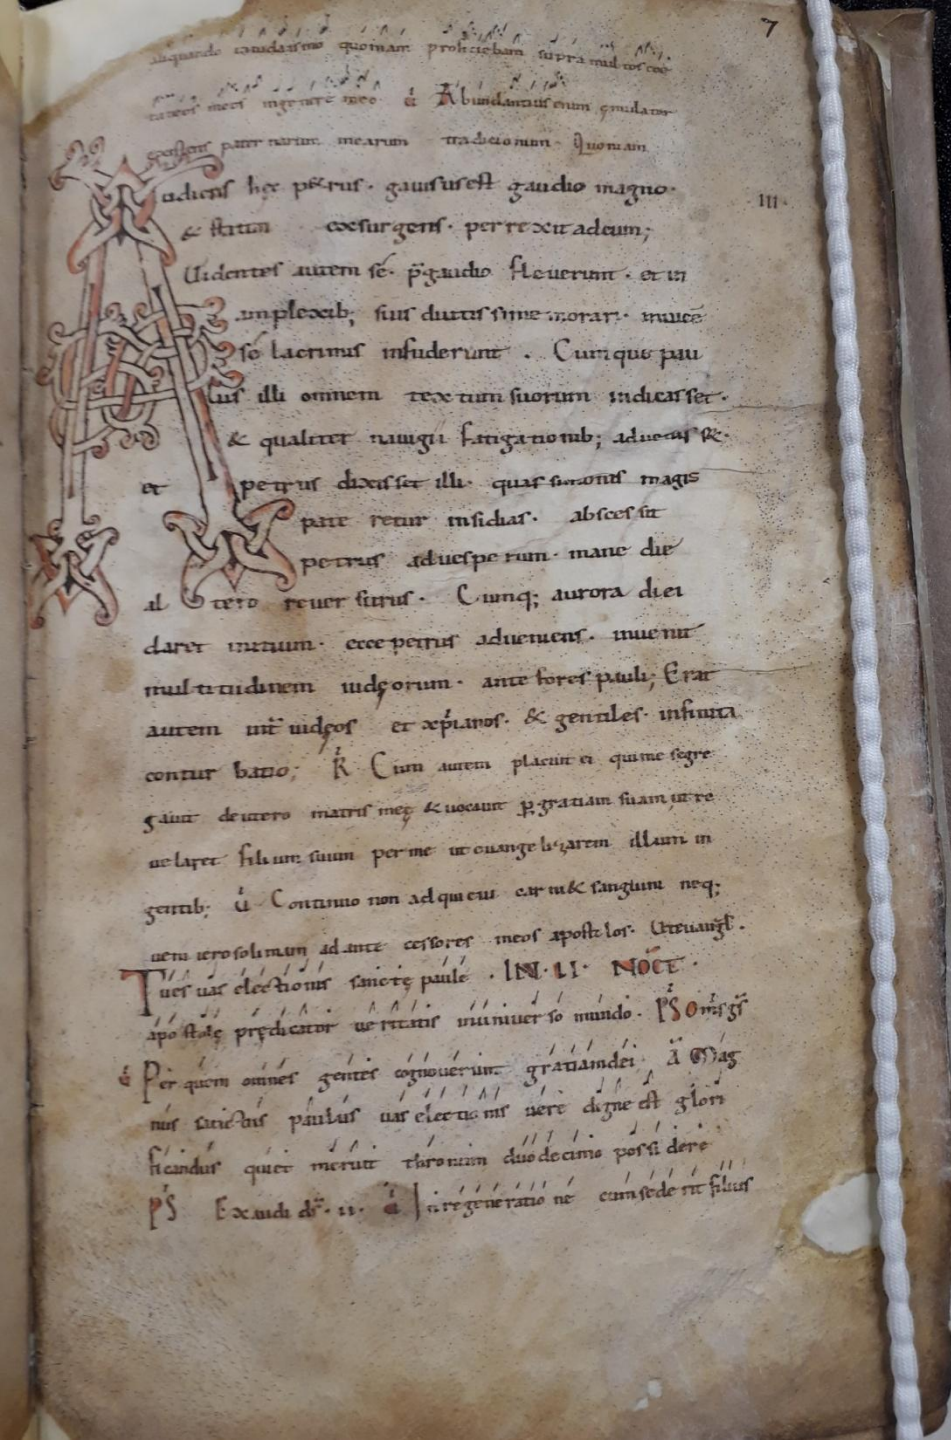 7
aliquando in iudaismo quoniam proficiebam supra multos coe
taneos meos in genere meo ℣ Abundantius enim ęmulator
existens paternarum mearum traditionum · Quoniam
Audiens hęc petrus · gauisus est gaudio magno ·
III ·
& statim exsurgens · perrexit ad eum;
Uidentes autem sé · p̄ gaudio fleuerunt · et in
amplexib; suis diutissime morari · inuicē
sé lacrimis infuderunt . Cumque pau
lus illi omnem textum suorum indicasset ·
& qualiter nauigii fatigationib; aduenis&·
et petrus dixisset illi · quas simonis magis
pateretur insidias · abscessit
petrus ad uesperum · mane die
altero reuersurus · Cumq; aurora diei
daret initium · ecce petrus adueniens · inuenit
multitudinem iudęorum · ante fores pauli; Erat
autem int̄ iudęos et xp̄ianos · & gentiles · infinita
conturbatio; ℟ Cum autem placuit ei qui me segre
gauit de utero matris meę & uocauit p̱ gratiam suam ut re
uelaret filium suum per me ut euangelizarem illum in
gentib; ℣ Continuo non adquieui carni & sanguini neq;
ueni ierosolimam ad antecessores meos apostolos · Ut euangł .
Tu es uas electionis sanctę paule · IN · II · NOCT̄ ·
apostolę prędicator ueritatis in uniuerso mundo · PS Om̄s gs̄
℣ Per quem omnes gentes cognouerunt gratiam dei A Mag
nus sanctus paulus uas electionis uere digne est glori
ficandus qui et meruit thronum duodecimo possidere
PS Exaudi ds̄ · II · A In regeneratione cum sederit filius